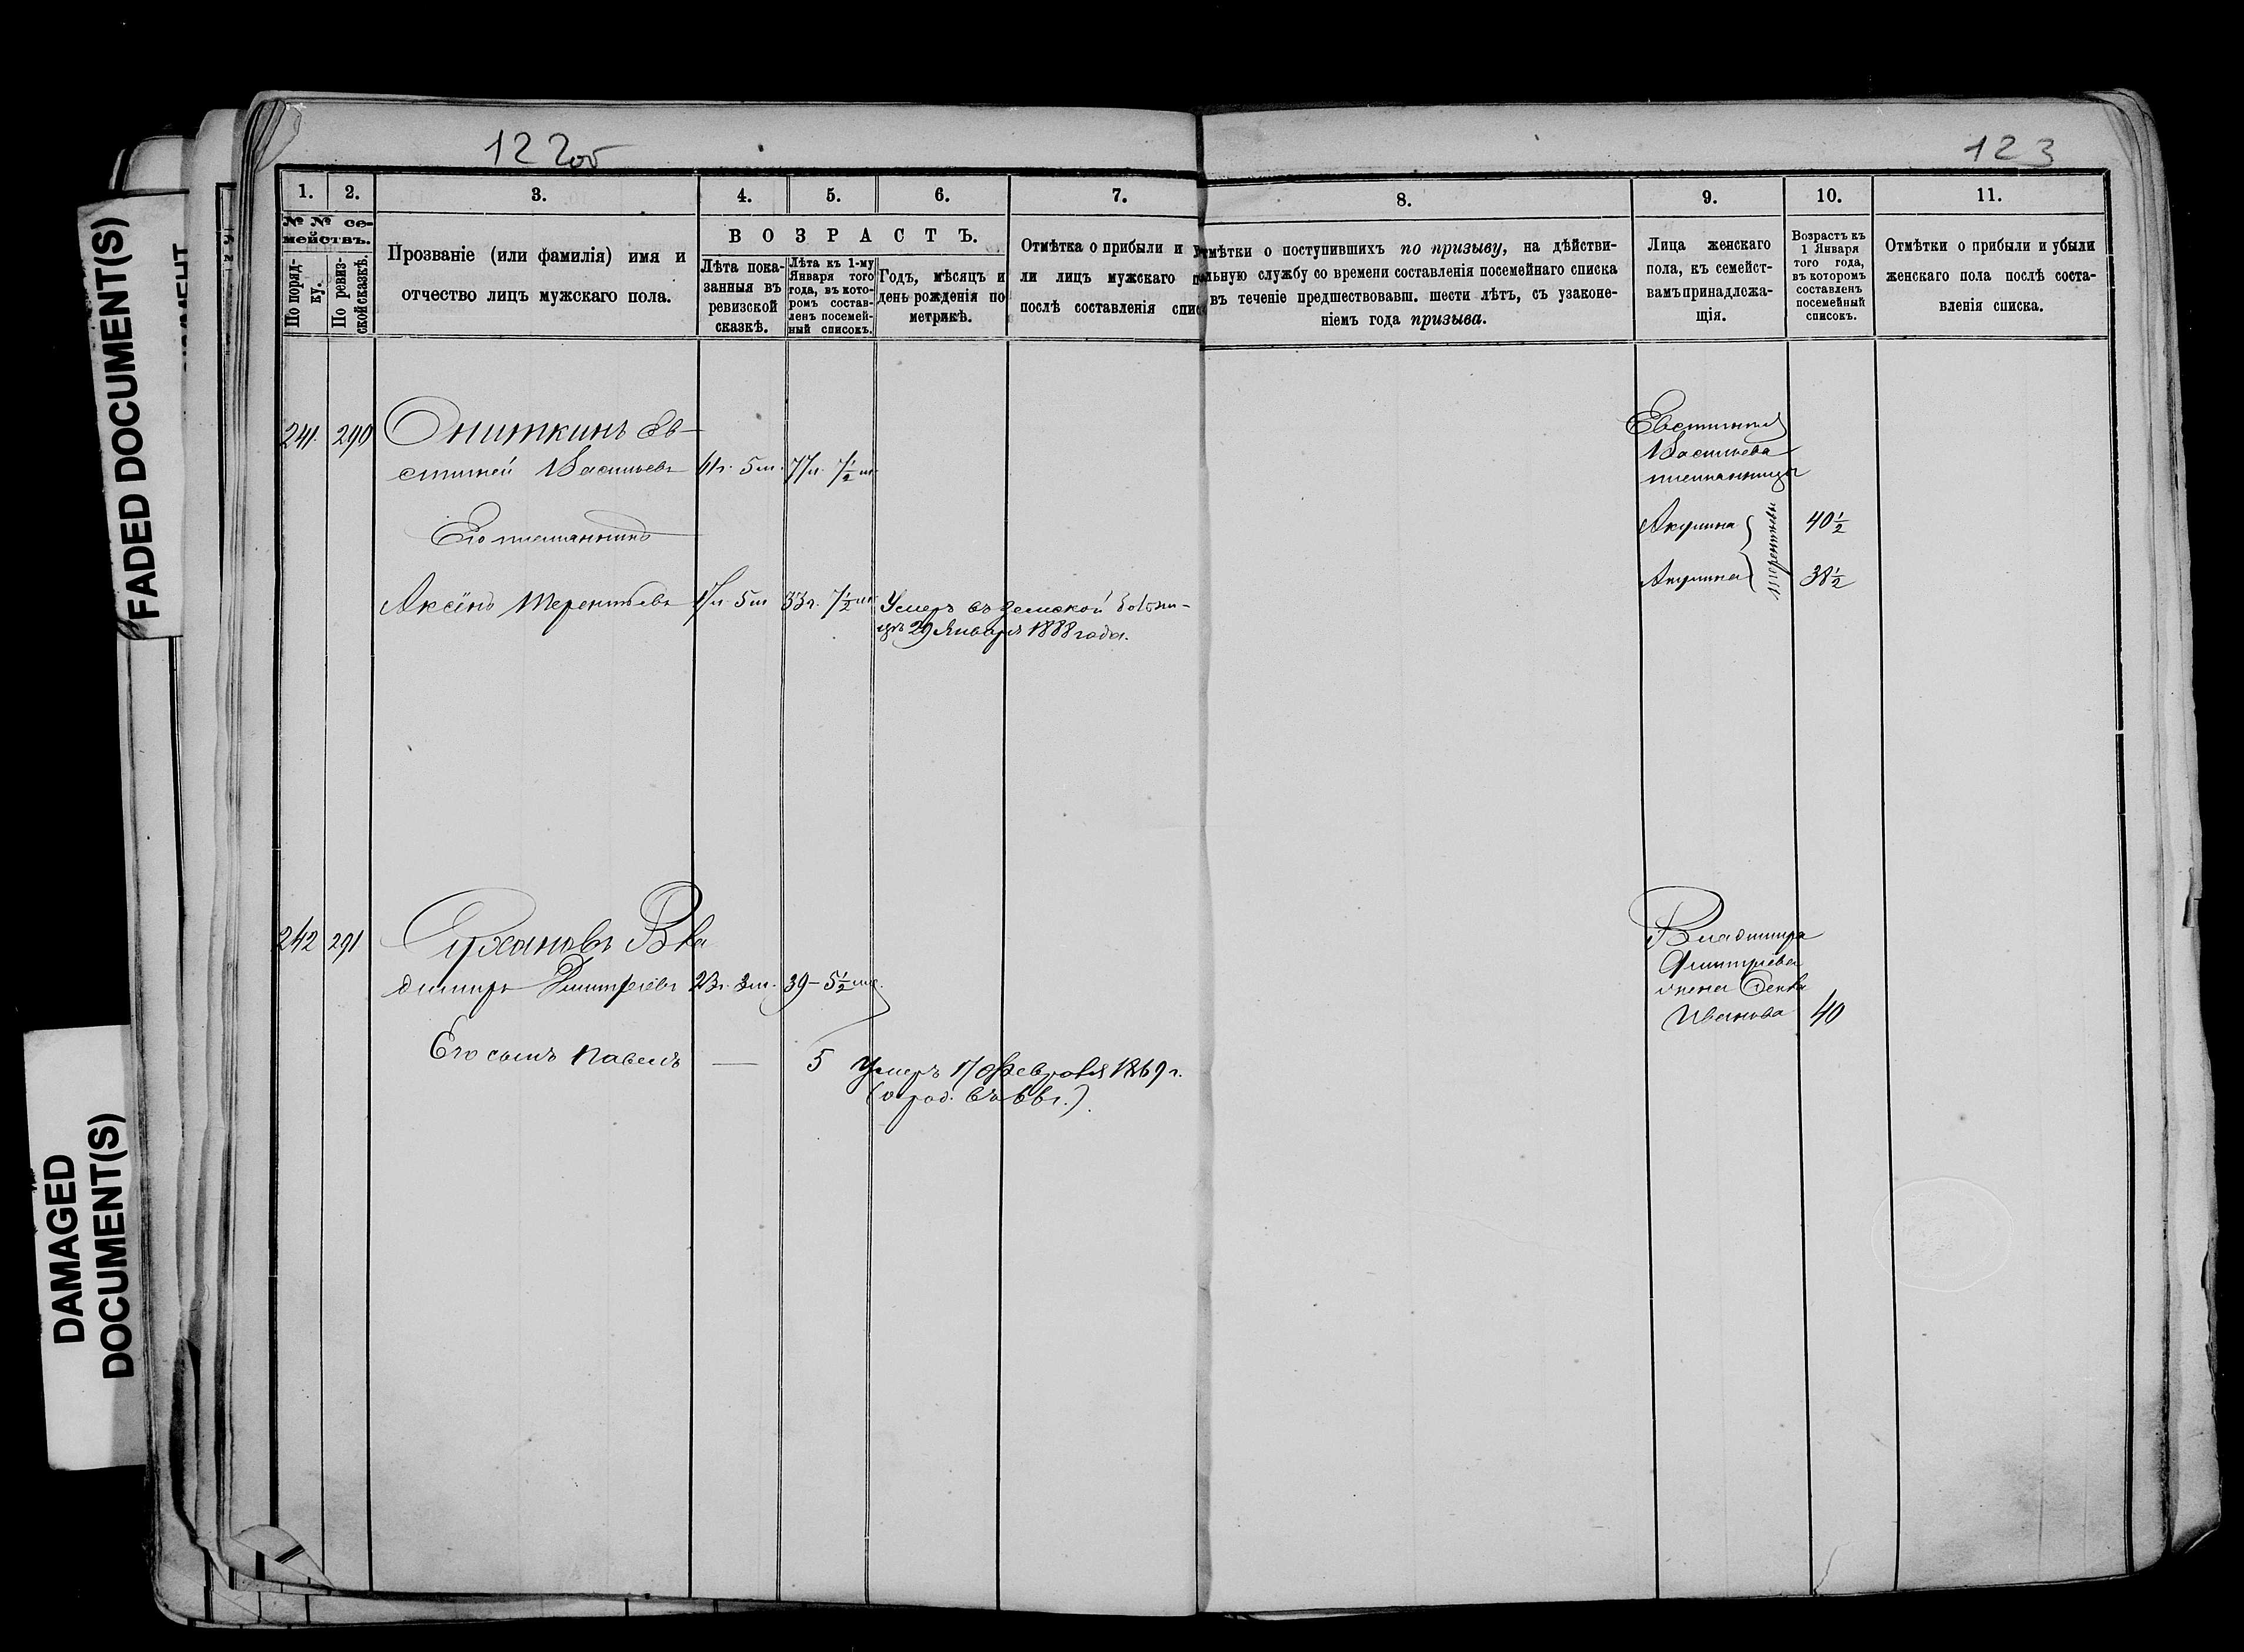 FADED DOCUMENT(S)
DAMAGED
DOCUMENT(S)
122об
123
1.
2.
3.
4.
5.
6.
7.
8.
9.
10.
11.
№ № се-
мействъ.
По поряд-
ку.
По ревиз-
ской сказкѣ.
Прозваніе (или фамилія) имя и
отчество лицъ мужскаго пола.
ВОЗРАСТЪ.
Лѣта пока-
занныя въ
ревизской
сказкѣ.
Лѣта къ 1-му
Января того
года, въ кото-
ромъ состав-
ленъ посемей-
ный списокъ.
Годъ, мѣсяцъ и
день рожденія по
метрикѣ.
Отмѣтка о прибыли и у
ли лицъ мужскаго п
послѣ составленія спис
тмѣтки о поступившихъ по призыву, на дѣйстви-
льную службу со времени составленія посемейнаго списка
въ теченіе предшествовавш. шести лѣтъ, съ узаконе-
ніемъ года призыва.
Лица женскаго
пола, къ семейст-
вамъ принадлежа-
щія.
Возрастъ къ
1 Января
того года,
въ которомъ
составленъ
посемейный
списокъ.
Отмѣтки о прибыли и убыли
женскаго пола послѣ соста-
вленія списка.
241. 290 Ониткинъ Ев-
стигней Васильевъ 61г. 5м. 77л. 7½м.
Его племянникъ
Аксёнъ Терентьевъ 17л. 5м 33г. 7½м. Умеръ въ земской больни-
цѣ 29 Января 1888 года.
Евстигнея
Васильева
племянницы
Акулина 40½
Терентьевы
Акулина 38½
242 291 Сухановъ Вла
димиръ Дмитріевъ 23г. 3м. 39-5½мѣ.
Его сынъ Павелъ — 5 Умеръ 17 февраля 1869 г.
Владимира
Дмитріева
жена
Иванова 40